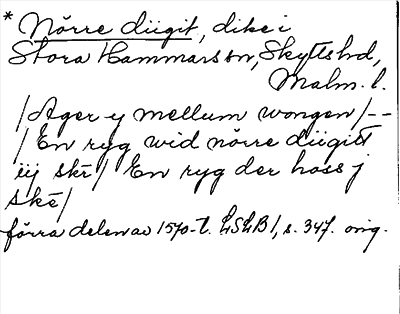 * Nörre diigit, dike i
Stora Hammars sn, Skytts hd,
Malm. l.
/Ager ij mellum wongen/--
/En ryg wid nörre diigitt
iij skr/ En ryg der hoss j
ske/
förra delen av 1570-t. LSLB 1, s. 347. orig.